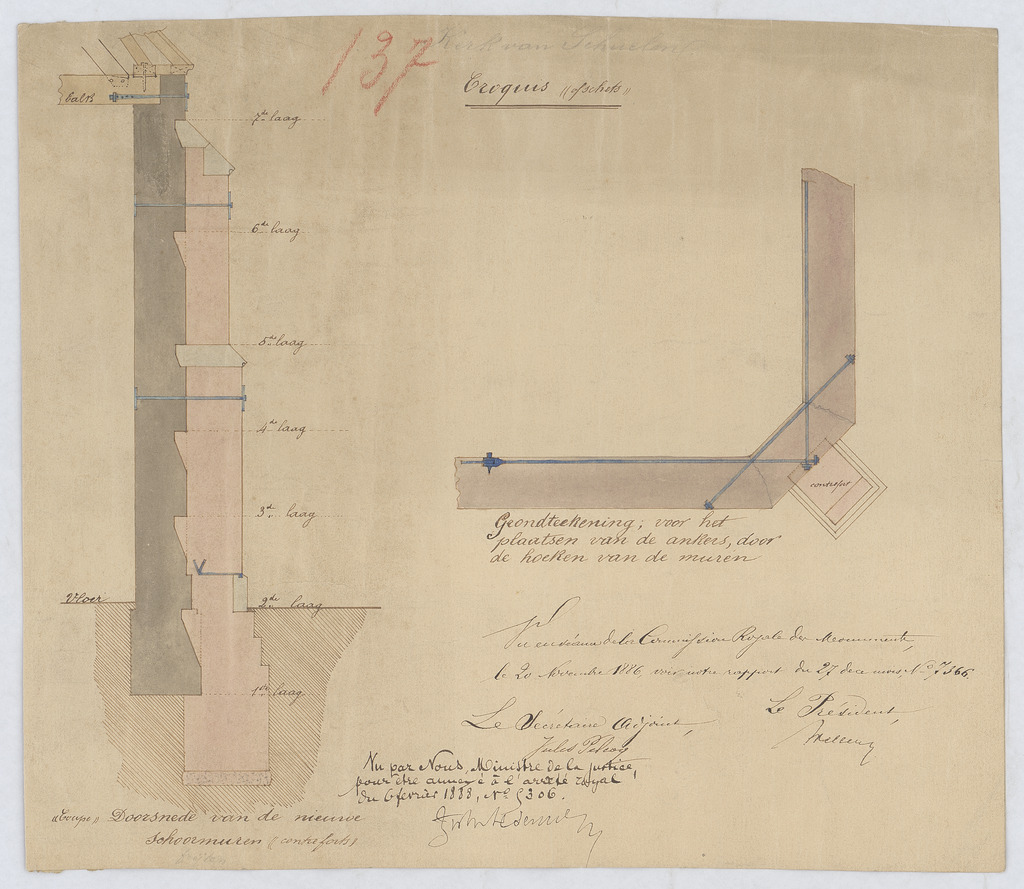 137
Kerk van
Croquis "ofschets"
balk
7de laag
6de laag
5de laag
4de laag
3de laag
Vloer
2de laag
1ste laag
contrefort
Grondteekening; voor het
plaatsen van de ankers, door
de hoeken van de muren
Vu en séance de la Commission Royale des Monuments,
le 20 Novembre 1886, voir notre rapport du 27 de ce mois, No 7366.
Le Secrétaire Adjoint,
Le Président,
Jules
Vu par Nous, Ministre de la justice,
pour être annexé à l'arrêté royal
du 6 février 1888, No 5306.
"Coupe" Doorsnede van de nieuwe
Schoormuren "contreforts"